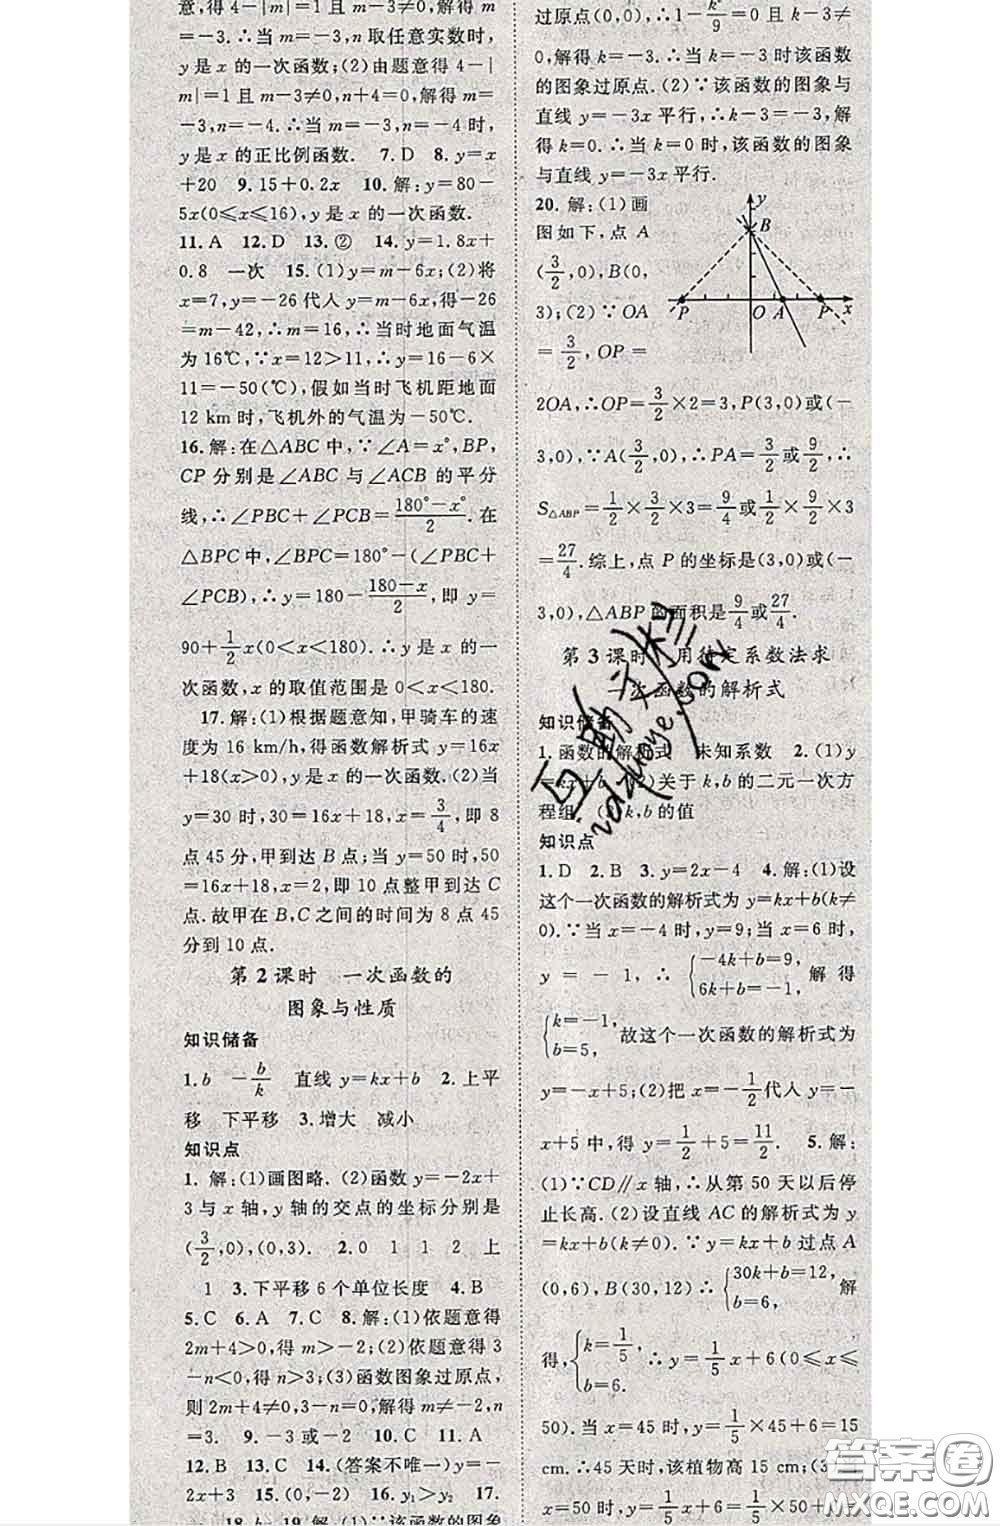 意,得4-|m|=1且m-3≠0,解得m=
-3.∴当m=-3,n取任意实数时,
y是x的一次函数;(2)由题意得4-|
m|=1且m-3≠0,n+4=0,解得m=
-3,n=-4.∴当m=-3,n=-4时,
y是x的正比例函数. 7.D 8.y=x
+20 9.15+0.2x 10.解:y=80-
5x(0≤x≤16),y是x的一次函数.
11.A 12.D 13.② 14.y=1.8x+
0.8 一次 15.(1)y=m-6x;(2)将
x=7,y=-26代人y=m-6x得-26
=m-42,∴m=16,∴当时地面气温
为16℃,∵x=12>11,∴y=16-6×
11=-50(℃),假如当时飞机距地面
12 km时,飞机外的气温为-50℃.
16.解:在△ABC中,∵∠A=x°,BP,
CP分别是∠ABC与∠ACB的平分
线,∴∠PBC+∠PCB=(180°-x°)/2.在
△BPC中,∠BPC=180°-(∠PBC+
∠PCB),∴y=180-(180-x)/2,即y=
90+1/2x(0<x<180).∴y是x的一
次函数,x的取值范围是0<x<180.
17.解:(1)根据题意知,甲骑车的速
度为16 km/h,得函数解析式y=16x
+18(x>0),y是x的一次函数.(2)当
y=30时,30=16x+18,x=3/4,即8
点45分,甲到达B点;当y=50时,50
=16x+18,x=2,即10点整甲到达C
点.故甲在B,C之间的时间为8点45
分到10点.
第2课时 一次函数的
图象与性质
知识储备
1.b -b/k 直线y=kx+b 2.上平
移 下平移 3.增大 减小
知识点
1.解:(1)画图略.(2)函数y=-2x+
3与x轴,y轴的交点的坐标分别是
(3/2,0),(0,3). 2.0 1 1 2 上
1 3.下平移6个单位长度 4.B
5.C 6.A 7.C 8.解:(1)依题意得
2m+4>0,得m>-2;(2)依题意得3
-n<0,得n>3;(3)函数图象过原点,
则2m+4≠0,3-n=0,解得m≠-2,n
=3. 9.-3或-2 10.C 11.A
12.B 13.C 14.(答案不唯一)y=-
2x+3 15.(0,-2) 16.y₁>y₂ 17.
18.k≥0 19.解:(1)∵该函数的图象
过原点(0,0),∴1-k²/9=0且k-3≠
0,解得k=-3,∴当k=-3时该函数
的图象过原点.(2)∵该函数的图象与
直线y=-3x平行,∴k-3=-3,解
得k=0.∴当k=0时,该函数的图象
与直线y=-3x平行.
20.解:(1)画
图如下,点A
(3/2,0),B(0,
3);(2)∵OA
=3/2,OP=
y
B
P O A P x
2OA,∴OP=3/2×2=3,P(3,0)或(-
3,0),∵A(3/2,0),∴PA=3/2或9/2,∴
S△ABP=1/2×3/2×3=9/4或1/2×9/2×3
=27/4.综上,点P的坐标是(3,0)或(-
3,0),△ABP的面积是9/4或27/4.
第3课时 用待定系数法求
一次函数的解析式
知识储备
1.函数的解析式 未知系数 2.(1)y
=kx+b (2)关于k,b的二元一次方
程组 (3)k,b的值
知识点
1.D 2.B 3.y=2x-4 4.解:(1)设
这个一次函数的解析式为y=kx+b(k≠
0).∵当x=-4时,y=9;当x=6时,
y=-1,∴{-4k+b=9, 6k+b=-1, 解得
{k=-1, b=5, 故这个一次函数的解析式为
y=-x+5;(2)把x=-1/2代人y=-
x+5中,得y=1/2+5=11/2. 5.解:
(1)∵CD∥x轴,∴从第50天以后停
止长高.(2)设直线AC的解析式为y
=kx+b(k≠0).∵y=kx+b过点A
(0,6),B(30,12)∴{30k+b=12, b=6, 解
得,{k=1/5, b=6. ∴y=1/5x+6(0≤x≤
50).当x=45时,y=1/5×45+6=15
cm.∴45天时,该植物高15 cm;(3)当
x=50时,y=1/5x+6=1/5×50+6=
互助文档
答案圈
MXQE.COM